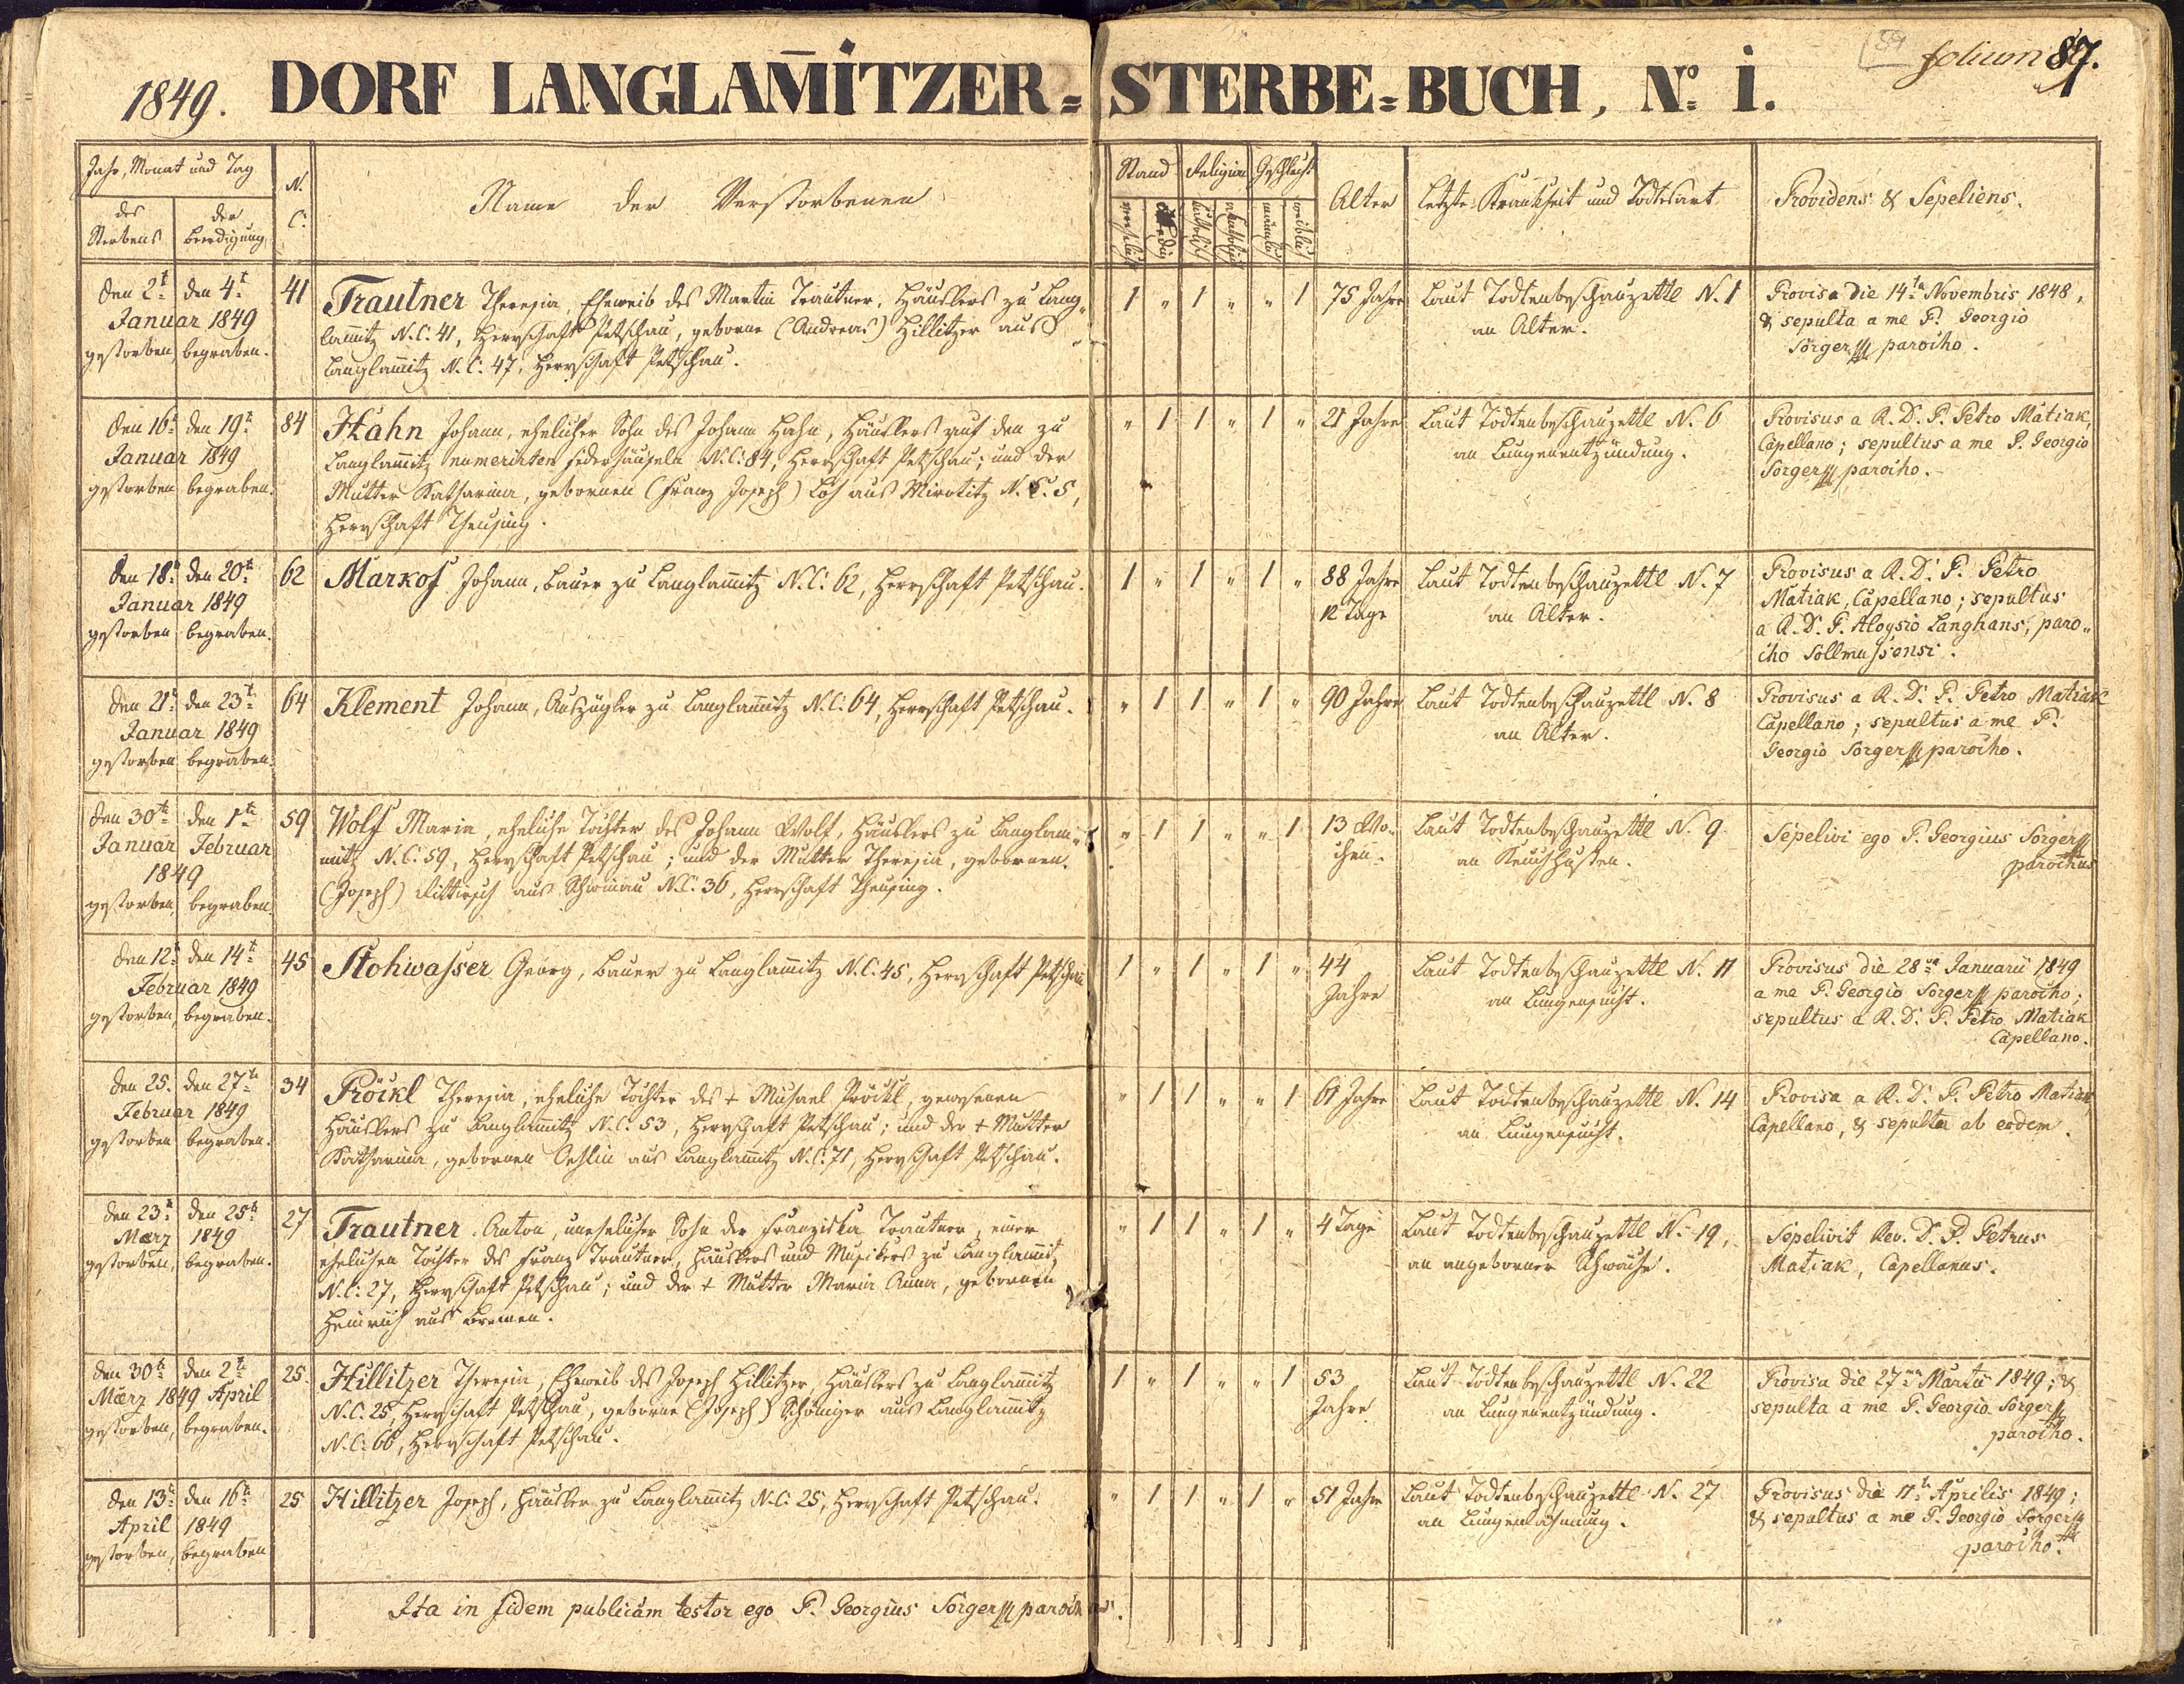 1849. DORF LANGLAM̄ITZER= STERBE=BUCH, No. 1.
folium 87.
Jahr, Monat und Tag
des Sterbens
der Beerdigung
N. C.
Name der Verstorbenen
Stand
Religion
Geschlecht
Alter
Letzte Krankheit und Todtesart
Providens & Sepeliens.
den 2t den 4t
Januar 1849
gestorben, begraben.
41
Trautner Theresia, Eheweib des Martin Trautner, Häuslers zu Lang-
lam̄itz N.C. 41, Herrschaft Petschau, geborne (Andreas) Hillitzer aus
Langlam̄itz N.C. 47, Herrschaft Petschau.
1 " 1 " " 1
75 Jahre
Laut Todtenbeschauzettl N. 1
an Alter.
Provisa die 14ta Novembris 1848,
& sepulta a me P. Georgio
Sorger parocho.
den 16t den 19t
Januar 1849
gestorben begraben.
84
Hahn Johann, ehelicher Sohn des Johann Hahn, Häuslers auf den zu
Langlam̄itz numerirten Federhäuseln N.C. 84, Herrschaft Petschau; und der
Mutter Katharina, gebornen (Franz Joseph) Löh aus Mirotitz N.C. 5,
Herrschaft Theusing.
" 1 1 " 1 "
21 Jahre
Laut Todtenbeschauzettl N. 6
an Lungenentzündung.
Provisus a R. D. P. Petro Matiak,
Capellano; sepultus a me P. Georgio
Sorger parocho.
den 18t den 20t
Januar 1849
gestorben begraben.
62
Markof Johann, Bauer zu Langlam̄itz N.C. 62, Herrschaft Petschau.
1 " 1 " 1 "
88 Jahre
12 Tage
Laut Todtenbeschauzettl N. 7
an Alter.
Provisus a R. D. P. Petro
Matiak, Capellano; sepultus
a R. D. P. Aloysio Langhans, paro-
cho Sollmussensi.
den 21t den 23t
Januar 1849
gestorben begraben.
64
Klement Johann, Auszügler zu Langlam̄itz N.C. 64, Herrschaft Petschau.
" 1 1 " 1 "
90 Jahre
Laut Todtenbeschauzettl N. 8
an Alter.
Provisus a R. D. P. Petro Matiak
Capellano; sepultus a me P.
Georgio Sorger parocho.
den 30t den 1t
Januar Februar
1849
gestorben, begraben.
59
Wolf Maria, eheliche Tochter des Johann Wolf, Häuslers zu Langlam-
mitz N.C. 59, Herrschaft Petschau; und der Mutter Theresia, gebornen
(Joseph) aus N.C. 36, Herrschaft Theusing.
" 1 1 " " 1
13 Wo-
chen.
Laut Todtenbeschauzettl N. 9
an Keuchhusten.
Sepelivi ego P. Georgius Sorger
parochus
den 12t den 14t
Februar 1849
gestorben, begraben.
45
Stohwasser Georg, Bauer zu Langlam̄itz N.C. 45, Herrschaft Petschau
1 " 1 " 1 "
44
Jahre
Laut Todtenbeschauzettl N. 11
an Lungensucht.
Provisus die 28va Januarii 1849
a me P. Georgio Sorger parocho;
sepultus a R. D. P. Petro Matiak
Capellano.
den 25. den 27t
Februar 1849
gestorben begraben.
34
Pröckl Theresia, eheliche Tochter des + Michael Pröckl, gewesenen
Häuslers zu Langlam̄itz N.C. 53, Herrschaft Petschau; und der + Mutter
Katharina, gebornen Oehlin aus Langlam̄itz N.C. 71, Herrschaft Petschau.
" 1 1 " " 1
61 Jahre
Laut Todtenbeschauzettl N. 14
an Lungensucht.
Provisa a R. D. P. Petro Matiak
Capellano, & sepulta ab eodem.
den 23t den 25t
März 1849
gestorben, begraben.
27
Trautner Anton, unehelicher Sohn der Franziska Trautner, einer
ehelichen Tochter des Franz Trautner, Häuslers und Musikers zu Langlam̄itz
N.C. 27, Herrschaft Petschau; und der + Mutter Maria Anna, gebornen
Heinrich aus Bremen.
" 1 1 " 1 "
4 Tage
Laut Todtenbeschauzettl N. 19,
an angeborner Schwäche.
Sepelivit Rev. D. P. Petrus
Matiak, Capellanus.
den 30t den 2t
März 1849 April
gestorben, begraben.
25.
Hillitzer Theresia, Eheweib des Joseph Hillitzer, Häuslers zu Langlam̄itz
N.C. 25, Herrschaft Petschau, geborne (Joseph) Schöniger aus Langlam̄itz
N.C. 66, Herrschaft Petschau.
1 " 1 " " 1
53
Jahre
Laut Todtenbeschauzettl N. 22
an Lungenentzündung.
Provisa die 27ma Martii 1849; &
sepulta a me P. Georgio Sorger
parocho.
den 13t den 16t
April 1849
gestorben, begraben
25
Hillitzer Joseph, Häusler zu Langlam̄itz N.C. 25, Herrschaft Petschau.
" 1 1 " 1 "
51 Jahre
Laut Todtenbeschauzettl N. 27
an Lungenlähmung.
Provisus die 11t Aprilis 1849;
& sepultus a me P. Georgio Sorger
parocho.
Ita in fidem publicam testor ego P. Georgius Sorger parochus.